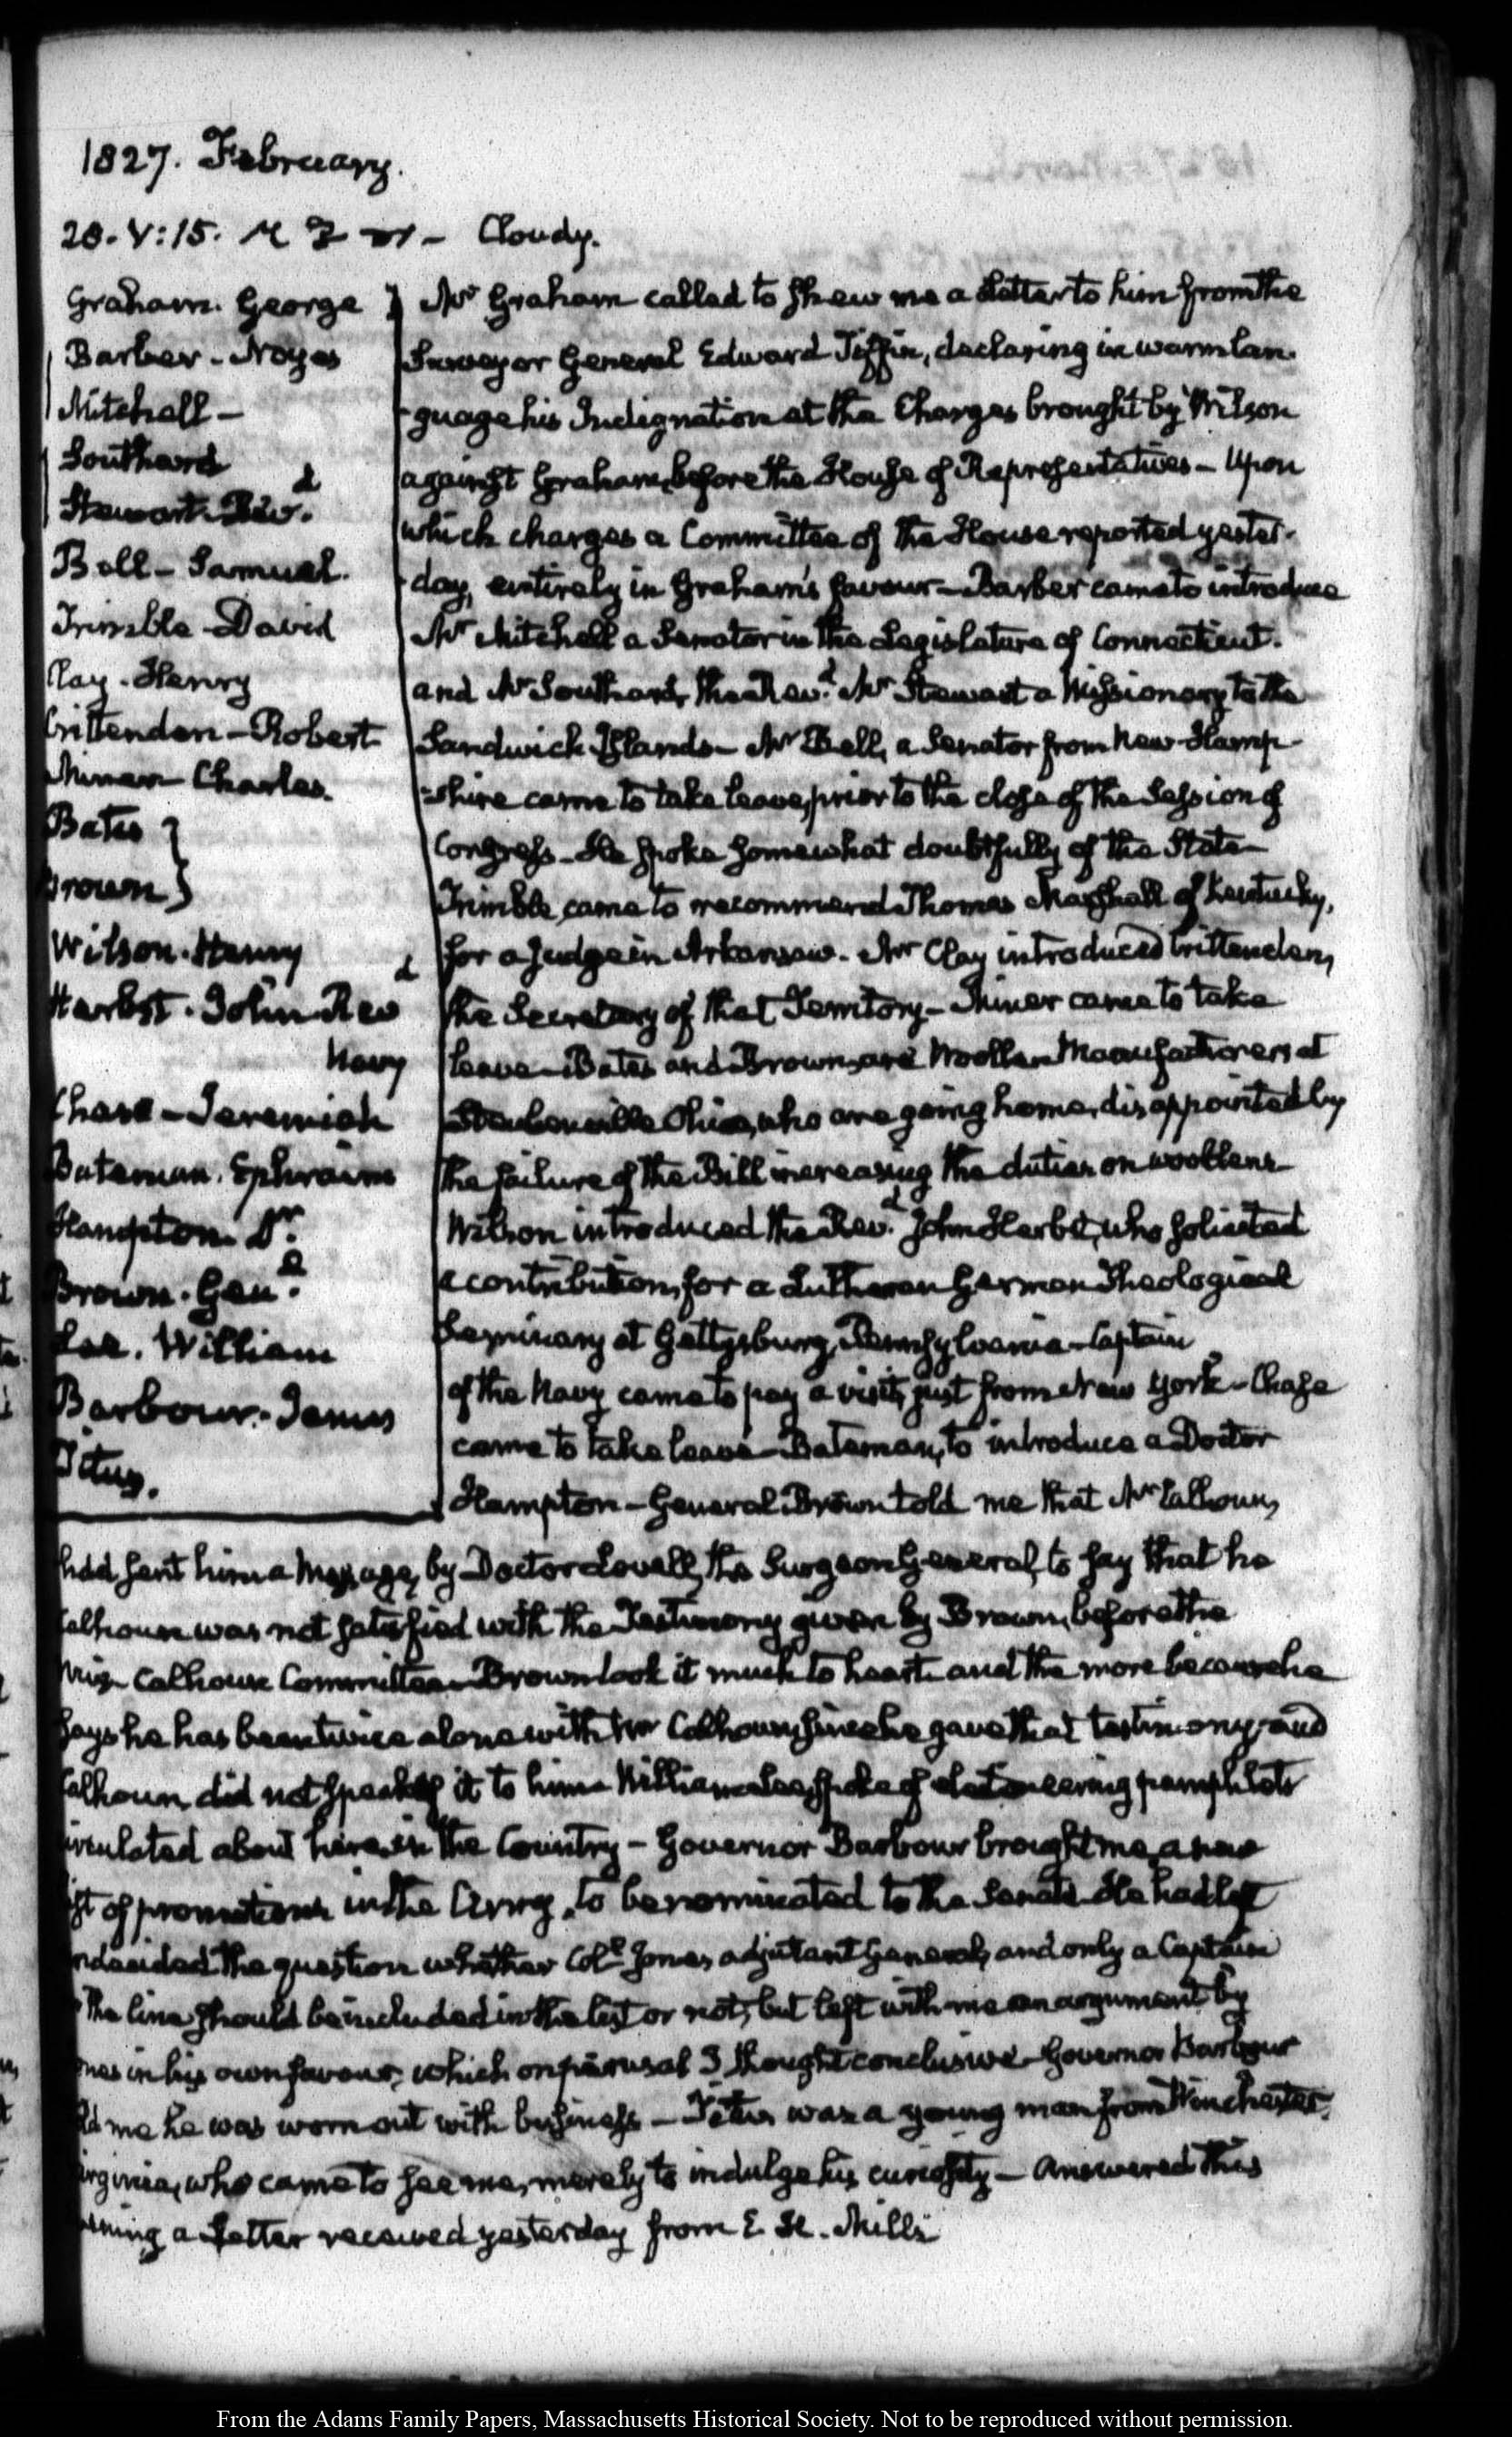 1827. February.
28. V:15. Cloudy.
Graham. George
Barber - Noyes
Mitchell -
Southard
Stewart Rev.d
Bell - Samuel.
Trimble - David
Clay - Henry
Crittenden - Robert
Miner Charles.
Bates
Brown
Wilson. Henry
Herbst. John Revd
Navy
Chase - Jeremiah
Bateman. Ephraim
Hampton Dr.
Brown. Genl.
Lee. William
Barbour. James
Titus.
Mr Graham called to shew me a Letter to him from the
Surveyor General Edward Tiffin, declaring in warm lan-
guage his Indignation at the Charges brought by Wilson
against Graham, before the House of Representatives - Upon
which charges a Committee of the House reported yester-
day, entirely in Graham's favour - Barber came to introduce
Mr Mitchell a Senator in the Legislature of Connecticut.
and Mr Southard, the Revd. Mr Stewart a Missionary to the
Sandwich Islands - Mr Bell, a Senator from New-Hamp-
shire came to take leave, prior to the close of the Session of
Congress - He spoke somewhat doubtfully of the State -
Trimble, came to recommend Thomas Marshall of Kentucky,
for a Judge in Arkansaw. Mr Clay introduced Crittenden,
the Secretary of that Territory - Miner came to take
leave - Bates and Brown, are Woollen Manufacturers at
Steubenville Ohio, who are going home, disappointed by
the failure of the Bill increasing the duties on woollens -
Wilson introduced the Revd. John Herbst, who solicited
a contribution, for a Lutheran German Theological
Seminary at Gettysburg, Pennsylvania - Captain
of the Navy came to pay a visit, just from New York - Chase
came to take leave - Bateman, to introduce a Doctor
Hampton - General Brown told me that Mr Calhoun,
had sent him a Message, by Doctor Lovell, the Surgeon General, to say that he
Calhoun was not satisfied with the Testimony given by Brown, before the
Calhoun Committee - Brown took it much to heart - and the more because he
says he has been twice alone with Mr Calhoun, since he gave that testimony, and
Calhoun did not speak of it to him - William Lee spoke of electioneering pamphlets
circulated about here, in the Country - Governor Barbour brought me a new
list of promotions in the Army, to be nominated to the Senate - He had left
undecided the question whether Coll Jones, adjutant General, and only a Captain
the line should be included in the list or not; but left with me an argument by
Jones in his own favour, which on perusal I thought conclusive - Governor Barbour
told me he was worn out with business - Titus was a young man from Winchester,
Virginia, who came to see me, merely to indulge his curiosity - Answered this
evening a Letter received yesterday from E. H. Mills
From the Adams Family Papers, Massachusetts Historical Society. Not to be reproduced without permission.